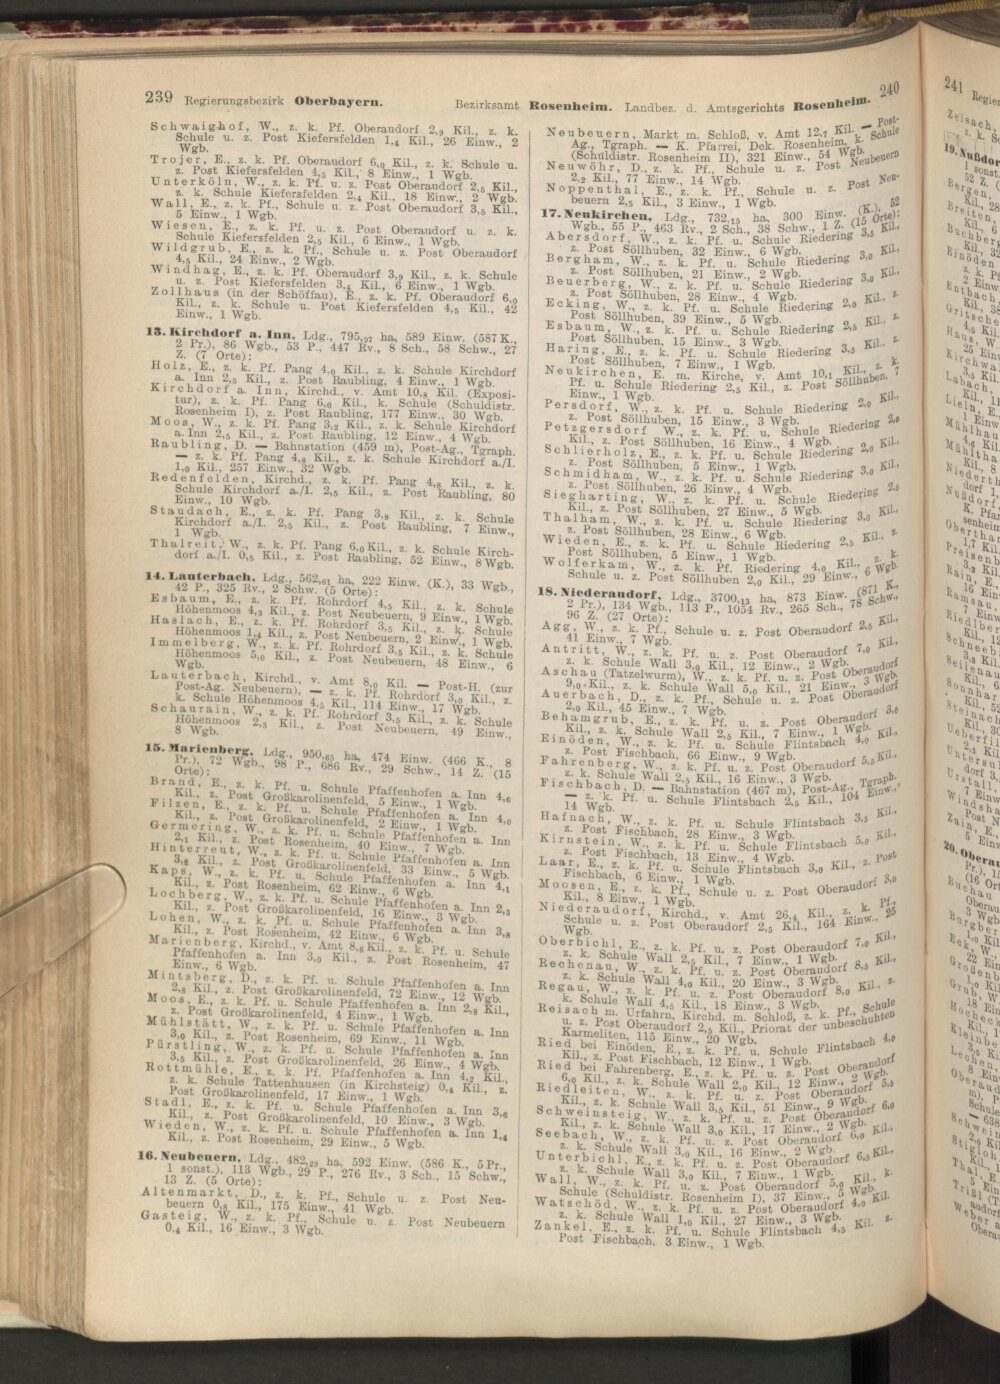 239 Regierungsbezirk Oberbayern.
Schwaighof, W., z. k. Pf. Oberaudorf 2,9 Kil., z. k.
Schule u. z. Post Kiefersfelden 1,4 Kil., 26 Einw., 2
Wgb.
Trojer, E., z. k. Pf. Oberaudorf 6,0 Kil., z. k. Schule u.
z. Post Kiefersfelden 4,5 Kil., 8 Einw., 1 Wgb.
Unterköln, W., z. k. Pf. u. z. Post Oberaudorf 2,5 Kil.,
z. k. Schule Kiefersfelden 2,4 Kil., 18 Einw., 2 Wgb.
Wall, E., z. k. Pf., Schule u. z. Post Oberaudorf 3,5 Kil.,
5 Einw., 1 Wgb.
Wiesen, E., z. k. Pf. u. z. Post Oberaudorf u. z. k.
Schule Kiefersfelden 2,5 Kil., 6 Einw., 1 Wgb.
Wildgrub, E., z. k. Pf., Schule u. z. Post Oberaudorf
4,5 Kil., 24 Einw., 2 Wgb.
Windhag, E., z. k. Pf. Oberaudorf 3,9 Kil., z. k. Schule
u. z. Post Kiefersfelden 3,4 Kil., 6 Einw., 1 Wgb.
Zollhaus (in der Schöffau), E., z. k. Pf. Oberaudorf 6,0
Kil., z. k. Schule u. Post Kiefersfelden 4,5 Kil., 42
Einw., 1 Wgb.
13. Kirchdorf a. Inn, Ldg., 795,97 ha, 589 Einw. (587 K.,
2 Pr.), 86 Wgb., 53 P., 447 Rv., 8 Sch., 58 Schw., 27
Z. (7 Orte):
Holz, E., z. k. Pf. Pang 4,0 Kil., z. k. Schule Kirchdorf
a. Inn 2,5 Kil., z. Post Raubling, 4 Einw., 1 Wgb.
Kirchdorf a. Inn, Kirchd., v. Amt 10,8 Kil. (Exposi-
tur), z. k. Pf. Pang 6,0 Kil., k. Schule (Schuldistr.
Rosenheim I), z. Post Raubling, 177 Einw., 30 Wgb.
Moos, W., z. k. Pf. Pang 3,9 Kil., z. k. Schule Kirchdorf
a. Inn 2,5 Kil., z. Post Raubling, 12 Einw., 4 Wgb.
Raubling, D. — Bahnstation (459 m), Post-Ag., Tgraph.
— z. k. Pf. Pang 4,8 Kil., z. k. Schule Kirchdorf a./I.
1,0 Kil., 257 Einw., 32 Wgb.
Redenfelden, Kirchd., z. k. Pf. Pang 4,8 Kil., z. k.
Schule Kirchdorf a./I. 2,5 Kil., z. Post Raubling, 80
Einw., 10 Wgb.
Staudach, E., z. k. Pf. Pang 3,8 Kil., z. k. Schule
Kirchdorf a./I. 2,5 Kil., z. Post Raubling, 7 Einw.,
1 Wgb.
Thalreit, W., z. k. Pf. Pang 6,0 Kil., z. k. Schule Kirch-
dorf a./I. 0,5 Kil., z. Post Raubling, 52 Einw., 8 Wgb.
14. Lauterbach, Ldg., 562,61 ha, 222 Einw. (K.), 33 Wgb.,
42 P., 325 Rv., 2 Schw. (5 Orte):
Esbaum, E., z. k. Pf. Rohrdorf 4,5 Kil., z. k. Schule
Höhenmoos 4,3 Kil., z. Post Neubeuern, 9 Einw., 1 Wgb.
Haslach, E., z. k. Pf. Rohrdorf 3,5 Kil., z. k. Schule
Höhenmoos 1,4 Kil., z. Post Neubeuern, 2 Einw., 1 Wgb.
Immelberg, W., z. k. Pf. Rohrdorf 3,5 Kil., z. k. Schule
Höhenmoos 5,0 Kil., z. Post Neubeuern, 48 Einw., 6
Wgb.
Lauterbach, Kirchd., v. Amt 8,0 Kil. — Post-H. (zur
Post-Ag. Neubeuern), — z. k. Pf. Rohrdorf 3,0 Kil., z.
k. Schule Höhenmoos 4,5 Kil., 114 Einw., 17 Wgb.
Schaurain, W., z. k. Pf. Rohrdorf 3,5 Kil., z. k. Schule
Höhenmoos 2,5 Kil., z. Post Neubeuern, 49 Einw.,
8 Wgb.
15. Marienberg, Ldg., 950,65 ha, 474 Einw. (466 K., 8
Pr.), 72 Wgb., 98 P., 686 Rv., 29 Schw., 14 Z. (15
Orte):
Brand, E., z. k. Pf. u. Schule Pfaffenhofen a. Inn 4,6
Kil., z. Post Großkarolinenfeld, 5 Einw., 1 Wgb.
Filzen, E., z. k. Pf. u. Schule Pfaffenhofen a. Inn 4,0
Kil., z. Post Großkarolinenfeld, 2 Einw., 1 Wgb.
Germering, W., z. k. Pf. u. Schule Pfaffenhofen a. Inn
2,1 Kil., z. Post Rosenheim, 40 Einw., 7 Wgb.
Hinterreut, W., z. k. Pf. u. Schule Pfaffenhofen a. Inn
3,8 Kil., z. Post Großkarolinenfeld, 33 Einw., 5 Wgb.
Kaps, W., z. k. Pf. u. Schule Pfaffenhofen a. Inn 4,1
Kil., z. Post Rosenheim, 62 Einw., 6 Wgb.
Lochberg, W., z. k. Pf. u. Schule Pfaffenhofen a. Inn 2,3
Kil., z. Post Großkarolinenfeld, 16 Einw., 3 Wgb.
Lohen, W., z. k. Pf. u. Schule Pfaffenhofen a. Inn 3,8
Kil., z. Post Rosenheim, 42 Einw., 6 Wgb.
Marienberg, Kirchd., v. Amt 8,6 Kil., z. k. Pf. u. Schule
Pfaffenhofen a. Inn 3,0 Kil., z. Post Rosenheim, 47
Einw., 6 Wgb.
Mintsberg, D., z. k. Pf. u. Schule Pfaffenhofen a. Inn
2,8 Kil., z. Post Großkarolinenfeld, 72 Einw., 12 Wgb.
Moos, E., z. k. Pf. u. Schule Pfaffenhofen a. Inn 2,8 Kil.,
z. Post Großkarolinenfeld, 4 Einw., 1 Wgb.
Mühlstätt, W., z. k. Pf. u. Schule Pfaffenhofen a. Inn
3,0 Kil., z. Post Rosenheim, 69 Einw., 11 Wgb.
Pürstling, W., z. k. Pf. u. Schule Pfaffenhofen a. Inn
3,5 Kil., z. Post Großkarolinenfeld, 26 Einw., 4 Wgb.
Rottmühle, E., z. k. Pf. Pfaffenhofen a. Inn 4,2 Kil.,
z. k. Schule Tattenhausen (in Kirchsteig) 0,4 Kil., z.
Post Großkarolinenfeld, 17 Einw., 1 Wgb.
Stadl, E., z. k. Pf. u. Schule Pfaffenhofen a. Inn 3,6
Kil., z. Post Großkarolinenfeld, 10 Einw., 3 Wgb.
Wieden, W., z. k. Pf. u. Schule Pfaffenhofen a. Inn 1,4
Kil., z. Post Rosenheim, 29 Einw., 5 Wgb.
16. Neubeuern, Ldg., 482,29 ha, 592 Einw. (586 K., 5 Pr.,
1 sonst.), 113 Wgb., 29 P., 276 Rv., 3 Sch., 15 Schw.,
13 Z. (5 Orte):
Altenmarkt, D., z. k. Pf., Schule u. z. Post Neu-
beuern 0,8 Kil., 175 Einw., 41 Wgb.
Gasteig, W., z. k. Pf., Schule u. z. Post Neubeuern
0,4 Kil., 16 Einw., 3 Wgb.
Bezirksamt Rosenheim. Landbez. d. Amtsgerichts Rosenheim. 240
Neubeuern, Markt m. Schloß, v. Amt 12,7 Kil. — Post-
Ag., Tgraph. — K. Pfarrei, Dek. Rosenheim, k. Schule
(Schuldistr. Rosenheim II), 321 Einw., 54 Wgb.
Neuwöhr, D., z. k. Pf., Schule u. z. Post Neubeuern
2,2 Kil., 77 Einw., 14 Wgb.
Noppenthal, E., z. k. Pf., Schule u. z. Post Neu-
beuern 2,5 Kil., 3 Einw., 1 Wgb.
17. Neukirchen, Ldg., 732,15 ha, 300 Einw. (K.), 52
Wgb., 55 P., 463 Rv., 2 Sch., 38 Schw., 1 Z. (15 Orte):
Abersdorf, W., z. k. Pf. u. Schule Riedering 3,5 Kil.,
z. Post Söllhuben, 32 Einw., 6 Wgb.
Bergham, W., z. k. Pf. u. Schule Riedering 3,0 Kil.,
z. Post Söllhuben, 21 Einw., 2 Wgb.
Beuerberg, W., z. k. Pf. u. Schule Riedering 3,0 Kil.,
z. Post Söllhuben, 28 Einw., 4 Wgb.
Ecking, W., z. k. Pf. u. Schule Riedering 2,0 Kil., z.
Post Söllhuben, 39 Einw., 5 Wgb.
Esbaum, W., z. k. Pf. u. Schule Riedering 2,5 Kil., z.
Post Söllhuben, 15 Einw., 3 Wgb.
Haring, E., z. k. Pf. u. Schule Riedering 3,5 Kil., z.
Post Söllhuben, 7 Einw., 1 Wgb.
Neukirchen, E. m. Kirche, v. Amt 10,1 Kil., z. k.
Pf. u. Schule Riedering 2,5 Kil., z. Post Söllhuben, 7
Einw., 1 Wgb.
Persdorf, W., z. k. Pf. u. Schule Riedering 2,0 Kil.,
z. Post Söllhuben, 15 Einw., 3 Wgb.
Petzgersdorf W., z. k. Pf. u. Schule Riedering 2,0
Kil., z. Post Söllhuben, 16 Einw., 4 Wgb.
Schlierholz, E., z. k. Pf. u. Schule Riedering 2,0 Kil.,
z. Post Söllhuben, 5 Einw., 1 Wgb.
Schmidham, W., z. k. Pf. u. Schule Riedering 3,0 Kil.,
z. Post Söllhuben, 26 Einw., 4 Wgb.
Siegharting, W., z. k. Pf. u. Schule Riedering 2,5
Kil., z. Post Söllhuben, 27 Einw., 5 Wgb.
Thalham, W., z. k. Pf. u. Schule Riedering 3,0 Kil.,
z. Post Söllhuben, 28 Einw., 6 Wgb.
Wieden, E., z. k. Pf. u. Schule Riedering 2,5 Kil., z.
Post Söllhuben, 5 Einw., 1 Wgb.
Wolferkam, W., z. k. Pf. Riedering 4,0 Kil., z. k.
Schule u. z. Post Söllhuben 2,0 Kil., 29 Einw., 6 Wgb.
18. Niederaudorf, Ldg., 3700,13 ha, 873 Einw. (871 K.,
2 Pr.), 134 Wgb., 113 P., 1054 Rv., 265 Sch., 78 Schw.,
96 Z. (27 Orte):
Agg, W., z. k. Pf., Schule u. z. Post Oberaudorf 2,5 Kil.,
41 Einw., 7 Wgb.
Antritt, W., z. k. Pf. u. z. Post Oberaudorf 7,0 Kil.,
z. k. Schule Wall 3,0 Kil., 12 Einw., 2 Wgb.
Aschau (Tatzelwurm), W., z. k. Pf. u. z. Post Oberaudorf
9,0 Kil., z. k. Schule Wall 5,0 Kil., 21 Einw., 3 Wgb.
Auerbach, D., z. k. Pf., Schule u. z. Post Oberaudorf
2,0 Kil., 45 Einw., 7 Wgb.
Behamgrub, E., z. k. Pf. u. z. Post Oberaudorf 3,0
Kil., z. k. Schule Wall 2,5 Kil., 7 Einw., 1 Wgb.
Einöden, W., z. k. Pf. u. Schule Flintsbach 4,0 Kil.,
z. Post Fischbach, 66 Einw., 9 Wgb.
Fahrenberg, W., z. k. Pf. u. z. Post Oberaudorf 5,5 Kil.,
z. k. Schule Wall 2,5 Kil., 16 Einw., 3 Wgb.
Fischbach, D. — Bahnstation (467 m), Post-Ag., Tgraph.
— z. k. Pf. u. Schule Flintsbach 2,5 Kil., 104 Einw.,
14 Wgb.
Hafnach, W., z. k. Pf. u. Schule Flintsbach 3,5 Kil.,
z. Post Fischbach, 28 Einw., 3 Wgb.
Kirnstein, W., z. k. Pf. u. Schule Flintsbach 5,0 Kil.,
z. Post Fischbach, 13 Einw., 4 Wgb.
Laar, E., z. k. Pf. u. Schule Flintsbach 3,0 Kil., z. Post
Fischbach, 6 Einw., 1 Wgb.
Moosen, E., z. k. Pf., Schule u. z. Post Oberaudorf 3,0
Kil., 8 Einw., 1 Wgb.
Niederaudorf, Kirchd., v. Amt 26,4 Kil., z. k. Pf.,
Schule u. z. Post Oberaudorf 2,5 Kil., 164 Einw., 25
Wgb.
Oberbichl, E., z. k. Pf. u. z. Post Oberaudorf 7,0 Kil.,
z. k. Schule Wall 2,5 Kil., 7 Einw., 1 Wgb.
Rechenau, W., z. k. Pf. u. z. Post Oberaudorf 8,5 Kil.,
z. k. Schule Wall 4,0 Kil., 20 Einw., 3 Wgb.
Regau, W., z. k. Pf. u. z. Post Oberaudorf 8,0 Kil., z.
k. Schule Wall 4,5 Kil., 18 Einw., 3 Wgb.
Reisach m. Urfahrn, Kirchd. m. Schloß, z. k. Pf., Schule
u. z. Post Oberaudorf 2,5 Kil., Priorat der unbeschuhten
Karmeliten, 115 Einw., 20 Wgb.
Ried bei Einöden, E., z. k. Pf. u. Schule Flintsbach 4,0
Kil., z. Post Fischbach, 12 Einw., 1 Wgb.
Ried bei Fahrenberg, E., z. k. Pf. u. z. Post Oberaudorf
6,0 Kil., z. k. Schule Wall 2,0 Kil., 12 Einw., 2 Wgb.
Riedleiten, W., z. k. Pf. u. z. Post Oberaudorf 5,5
Kil., z. k. Schule Wall 3,5 Kil., 51 Einw., 9 Wgb.
Schweinsteig, W., z. k. Pf. u. z. Post Oberaudorf 6,0
Kil., z. k. Schule Wall 3,0 Kil., 17 Einw., 2 Wgb.
Seebach, W., z. k. Pf. u. z. Post Oberaudorf 6,0 Kil.,
z. k. Schule Wall 3,0 Kil., 16 Einw., 2 Wgb.
Unterbichl, E., z. k. Pf. u. z. Post Oberaudorf 6,5 Kil.,
z. k. Schule Wall 3,0 Kil., 7 Einw., 1 Wgb.
Wall, W., z. k. Pf. u. z. Post Oberaudorf 5,0 Kil., k.
Schule (Schuldistr. Rosenheim I), 37 Einw., 5 Wgb.
Watschöd, W., z. k. Pf. u. z. Post Oberaudorf 4,0 Kil.
z. k. Schule Wall 1,0 Kil., 27 Einw., 3 Wgb.
Zankel, E., z. k. Pf. u. Schule Flintsbach 4,5 Kil. z.
Post Fischbach, 3 Einw., 1 Wgb.
241